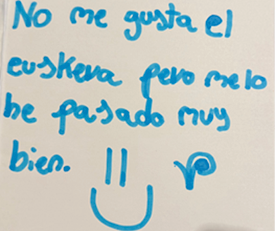 No me gusta el
euskera pero me lo
he pasado muy
bien.